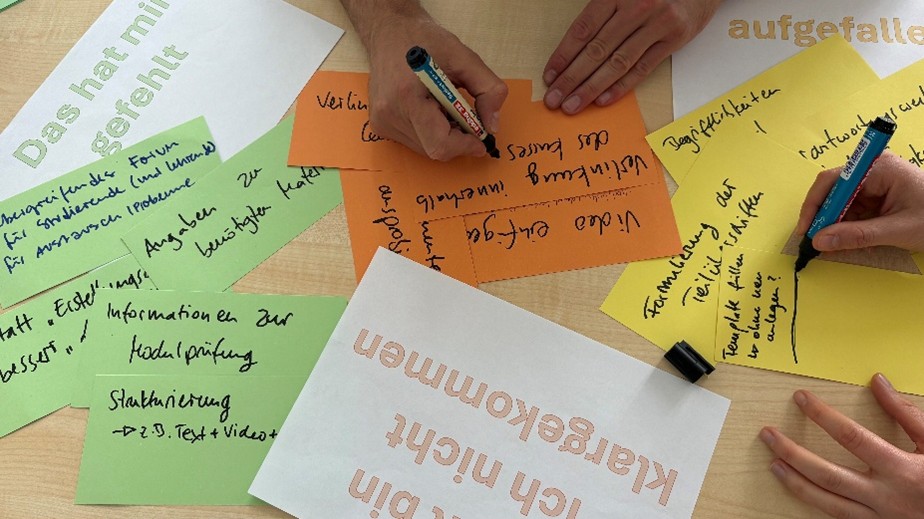 Das hat mir
gefehlt
aufgefalle
übergreifendes Forum
für Studierende (und Lehrende)
für Austausch/Probleme
Angaben zu
benötigten Mater
statt „Erstellungs
bessert
Informationen zur
Modulprüfung
Strukturierung
→ z.B. Text + Video +
Verlin
Verlinkung innerhalb
des Kurses
Video einfüge
Begrifflichkeiten
antwortung
Formulierung der
schriften
Template füllen
ohne neu
anlegen?
t bin
ich nicht
klargekommen